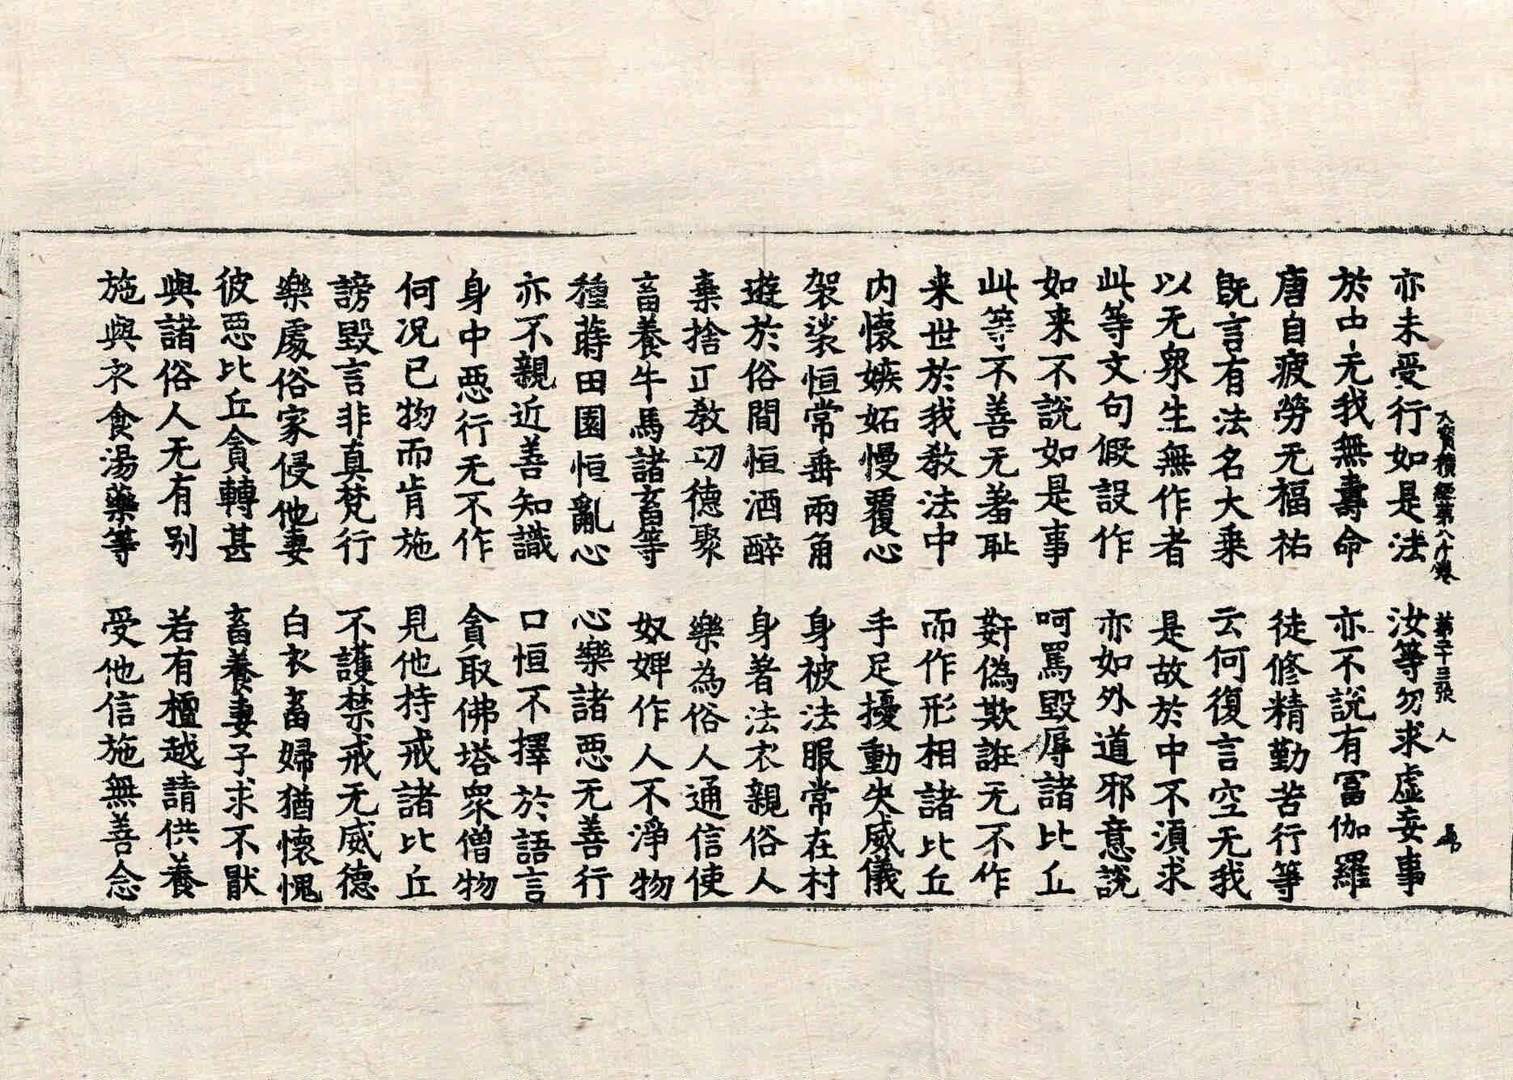 大寶積經第八十卷　第二十三張　人
亦未受行如是法　汝等勿求虛妄事
於中无我無壽命　亦不說有冨伽羅
唐自疲勞无福祐　徒修精勤苦行等
旣言有法名大乗　云何復言空无我
以无衆生無作者　是故於中不湏求
此等文句假設作　亦如外道邪意說
如来不說如是事　呵罵毀辱諸比丘
此等不善无著耻　姧偽欺誑无不作
来世於我教法中　而作形相諸比丘
内懷嫉妬慢覆心　手足擾動失威儀
袈裟恒常垂兩角　身被法服常在村
遊於俗間恒酒醉　身著法衣親俗人
棄捨正教功德聚　樂為俗人通信使
畜養牛馬諸畜等　奴婢作人不淨物
種蒔田園恒亂心　心樂諸惡无善行
亦不親近善知識　口恒不擇於語言
身中惡行无不作　貪取佛塔衆僧物
何况已物而肯施　見他持戒諸比丘
謗毀言非真梵行　不護禁戒无威德
樂處俗家侵他妻　白衣畜婦猶懷愧
彼惡比丘貪轉甚　畜養妻子求不猒
與諸俗人无有别　若有檀越請供養
施與衣食湯藥等　受他信施無善念